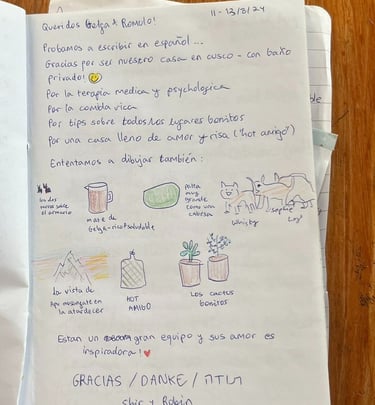 11-13/8/24
Queridos Gelga & Romulo!
Probamos a escribir en español...
Gracias por ser nuestro casa en cusco - con baño
privado!
Por la terapia medica y psychologica
Por la comida rica
Por tips sobre todos los lugares bonitos
Por una casa lleno de amor y risa ("hot amigo")
Ententamos a dibujar también:
los dos
sobre el
armario
mate de
Gelga-rico+saludable
palta
muy
grande
como una
cabeza
Whisky
Sophie
La vista de
Apu Ausangate en
la atardecer
HOT
AMIGO
Los cactus
bonitos
Estan un gran equipo y sus amor es
inspiradora!
GRACIAS / DANKE / תודה
Shir y Robin